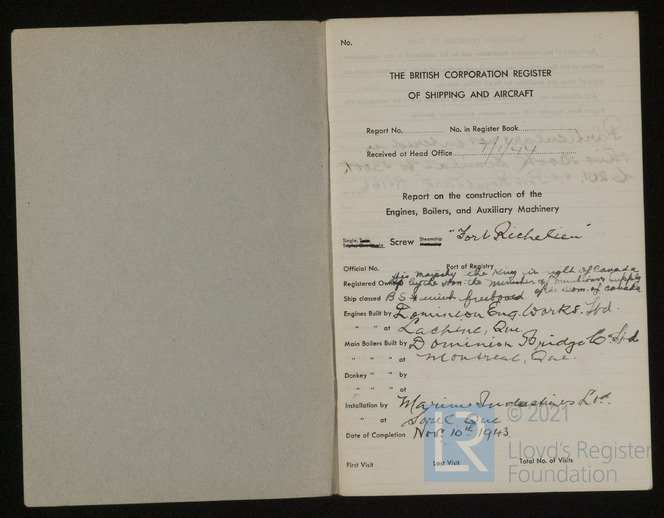 No.
THE BRITISH CORPORATION REGISTER
OF SHIPPING AND AIRCRAFT
Report No. No. in Register Book
Received at Head Office 7/1/44
Report on the construction of the
Engines, Boilers, and Auxiliary Machinery
Single, Screw Steamship "Fort Richelieu"
Official No. Port of Registry
His Majesty the King in right of Canada
Registered Owner by the Hon. the Minister of Munitions & Supply
of the Dom. of Canada
Ship classed B.S* with freeboard
Engines Built by Dominion Eng. Works. Ltd.
" " at Lachine, Que.
Main Boilers Built by Dominion Bridge Co Ltd
" " " at Montreal, Que.
Donkey " " by
" " " at
Installation by Marine Industries Ltd.
" at Sorel Que
Date of Completion Nov. 10th 1943.
First Visit Last Visit Total No. of Visits
LR © 2021
Lloyd's Register
Foundation